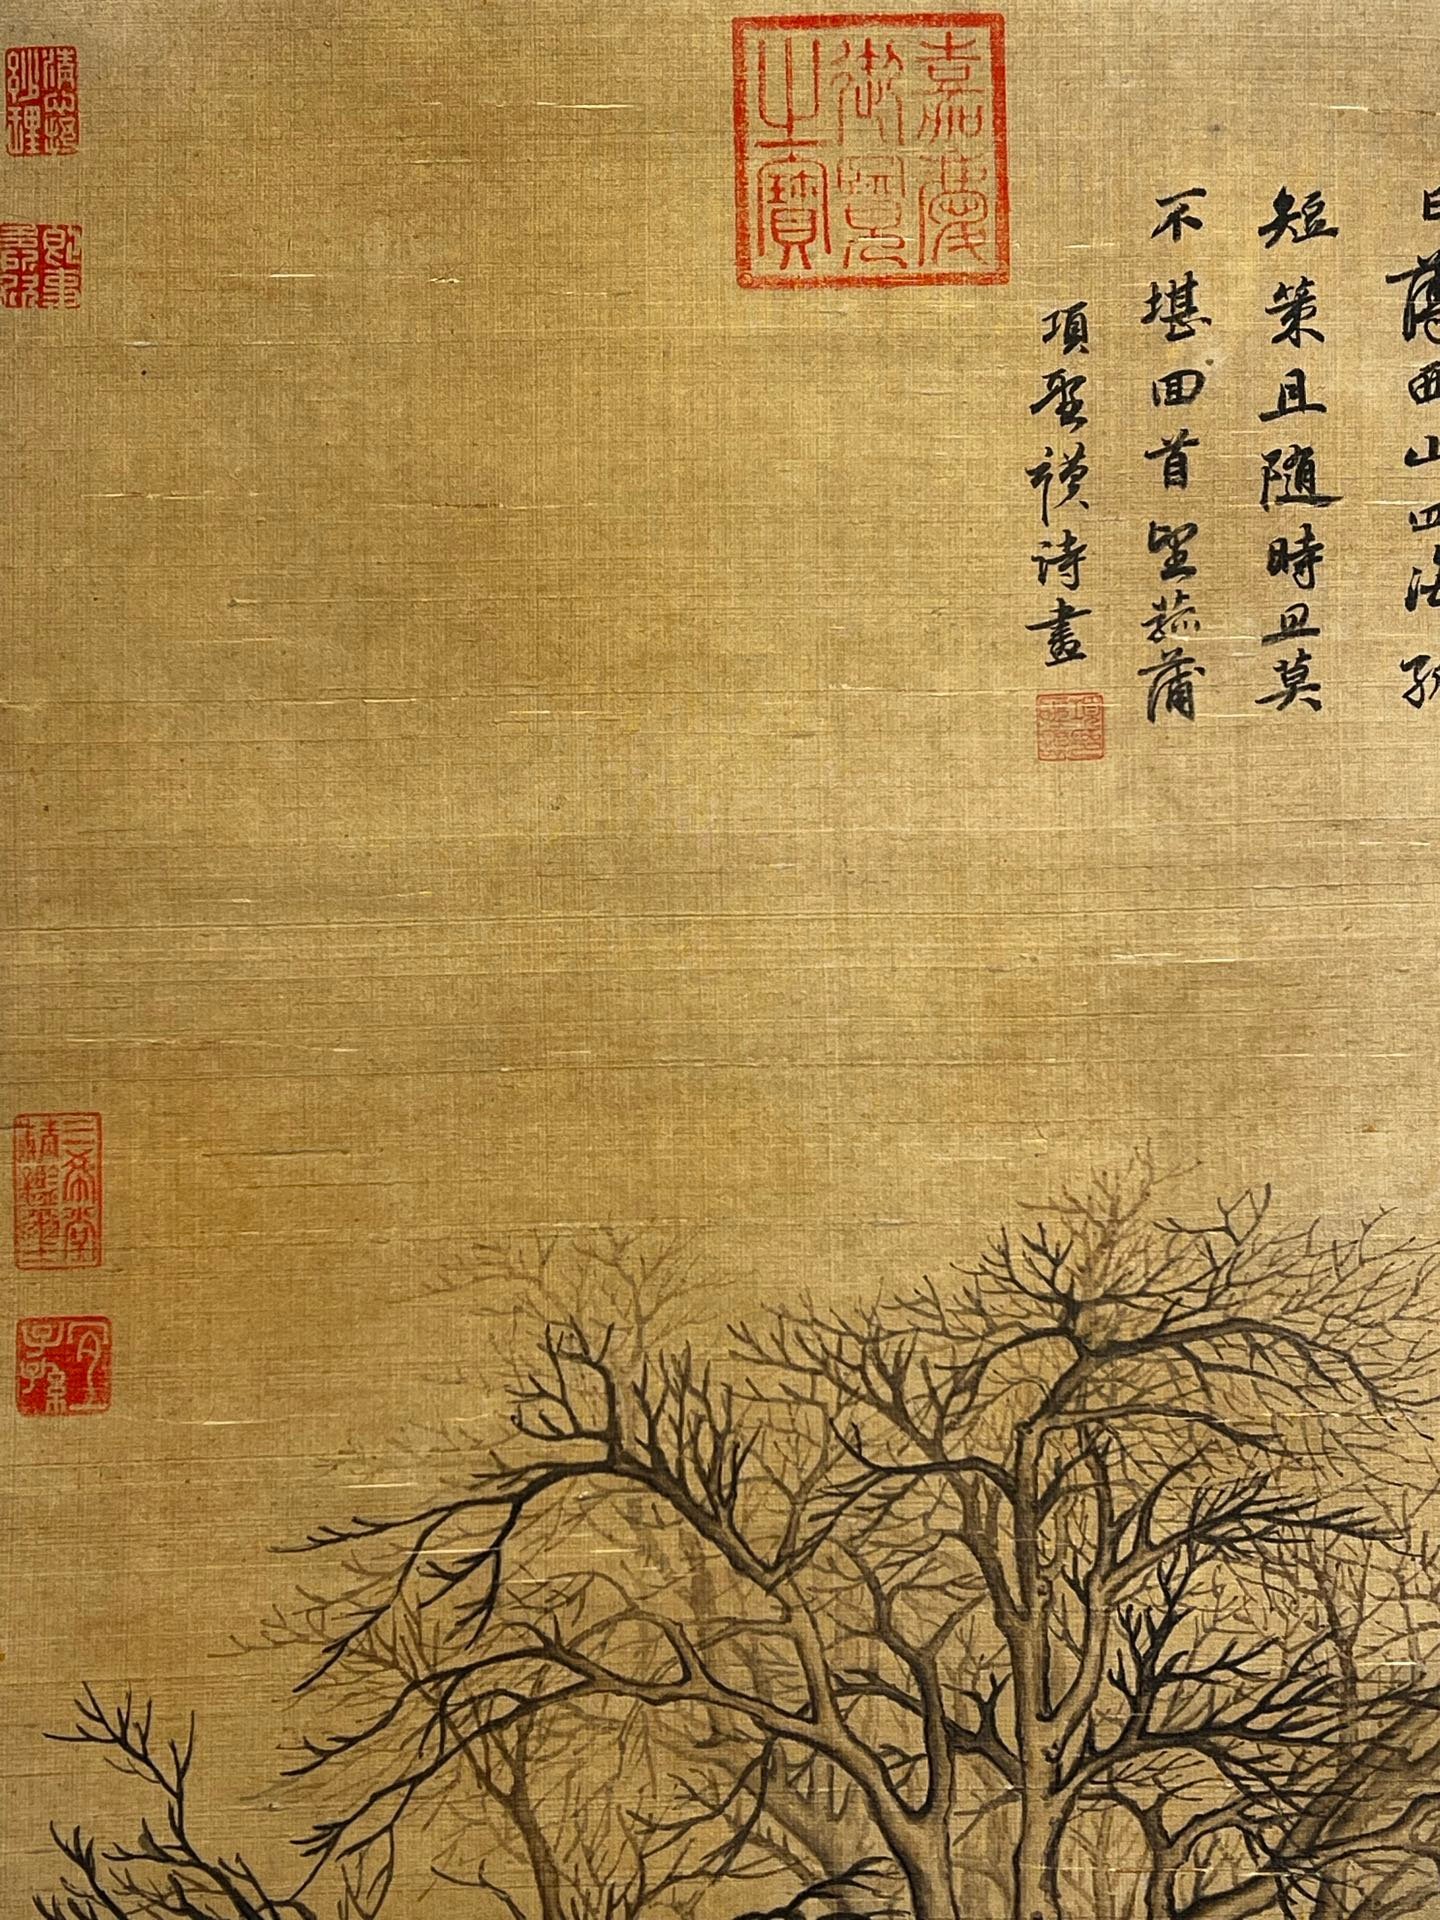 日薄西山四海孤
短策且随時且莫
不堪回首望菰蒲
項聖謨詩畫
嘉慶御覽之寶
三希堂精鑑璽
宜子孫